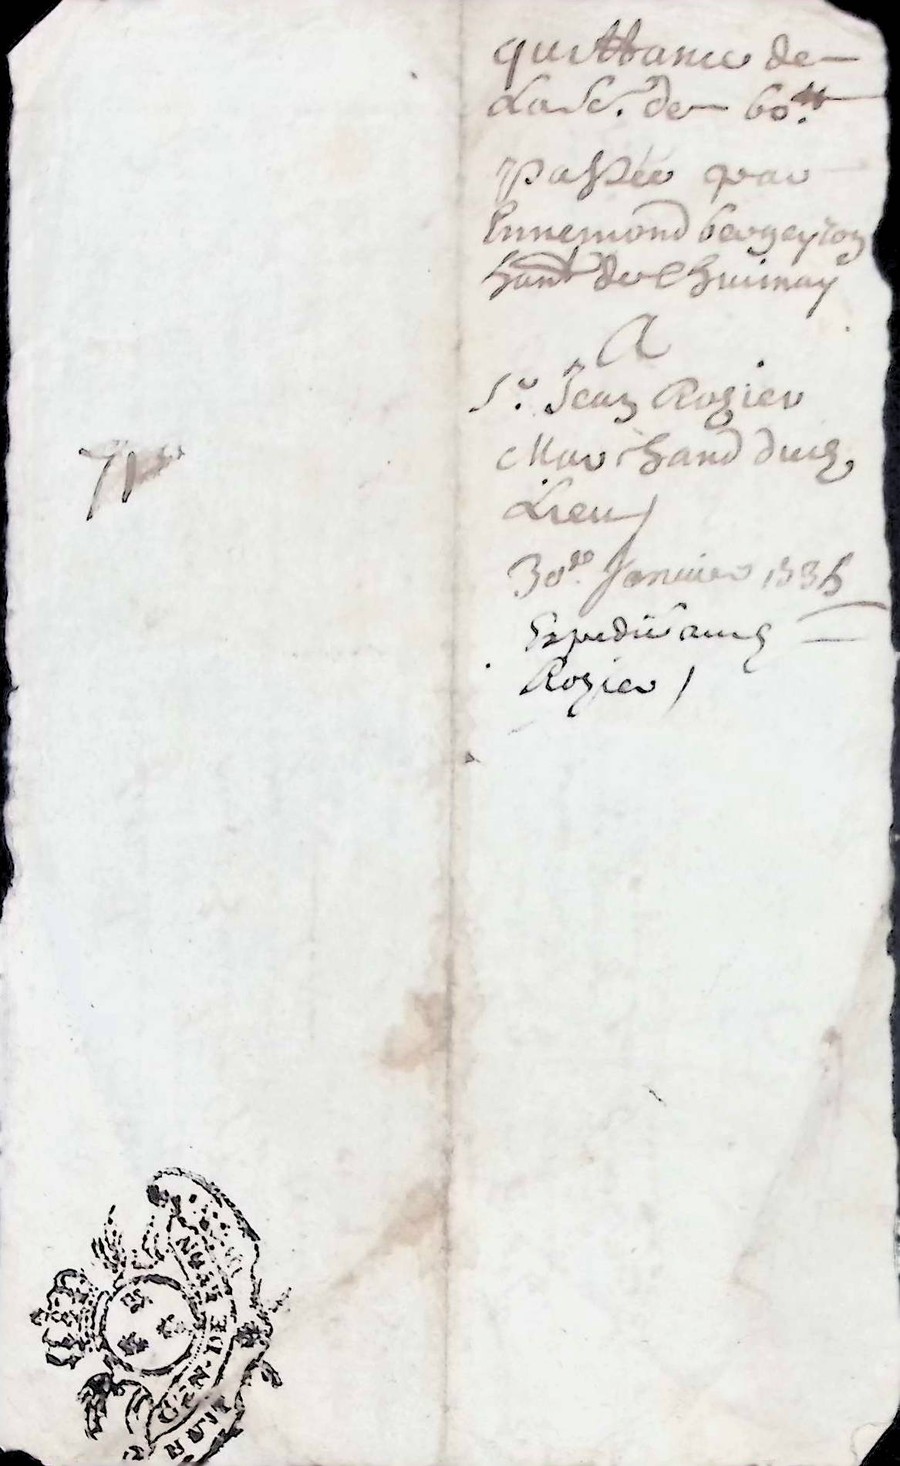 quittance de
La So. de 60.tt
passée par
Ennemond bergeyron
habt de Chuinay
A
Sr. Jean Rozier
Marchand dud
Lieu
30e. Janvier
Expedié aud
Rozier
GEN. DE LYON
HUIT